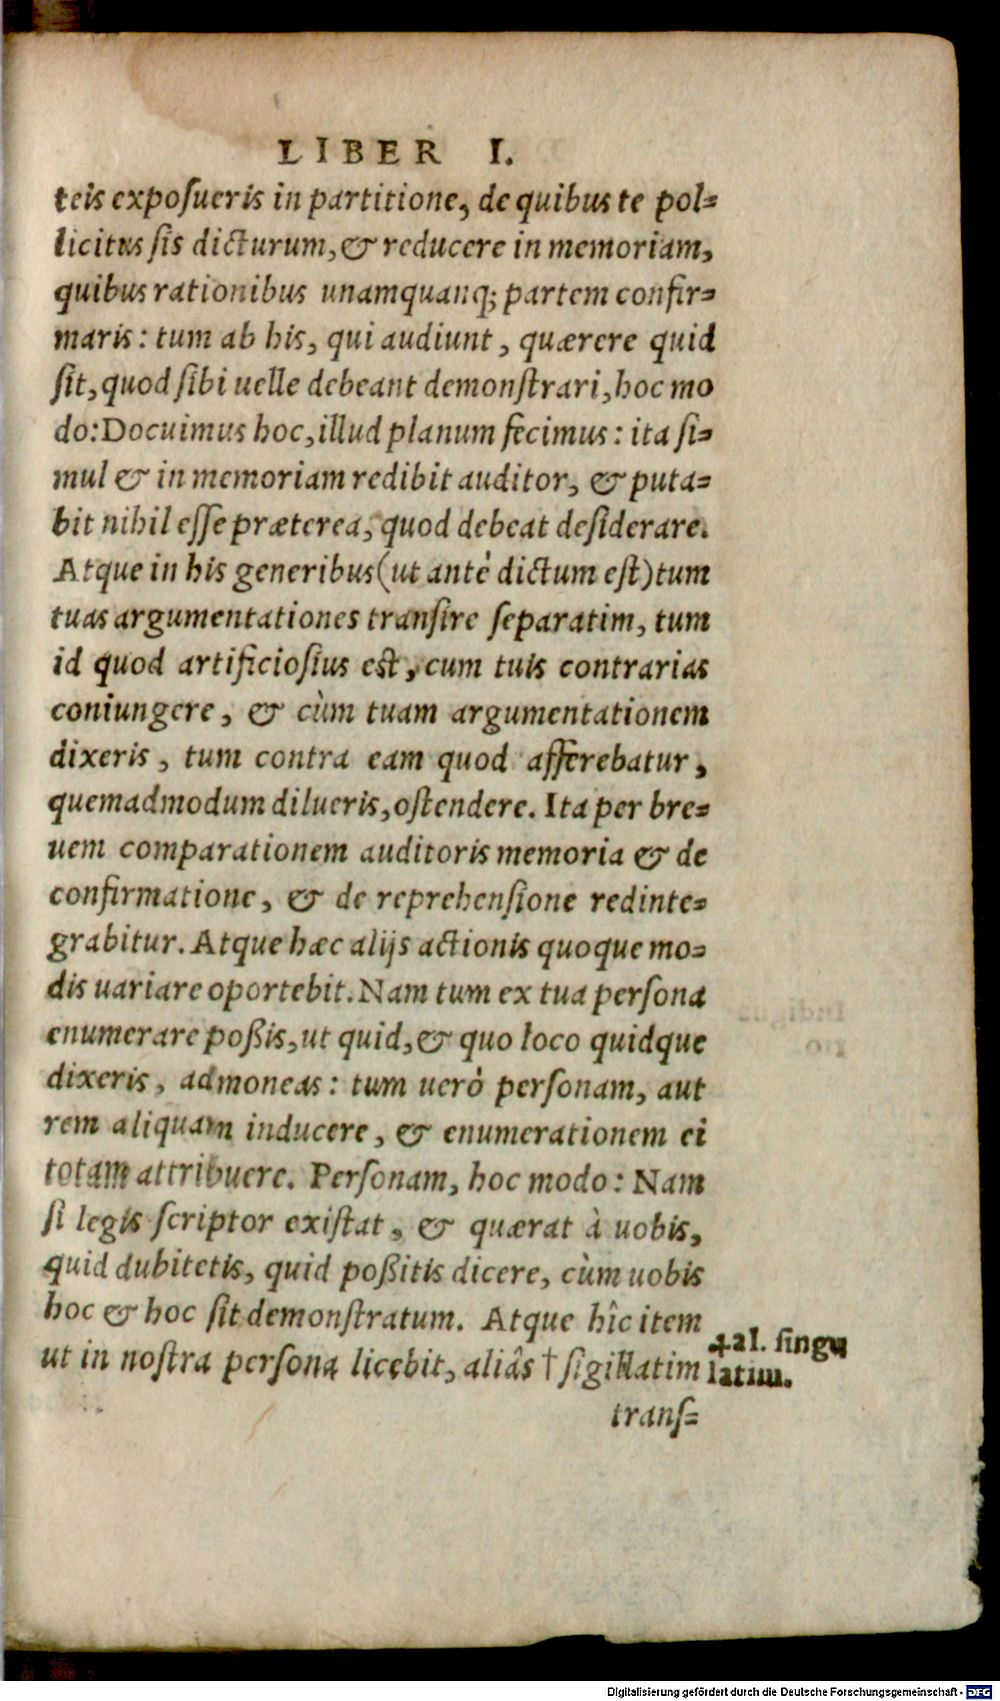 LIBER I.
teis exposueris in partitione, de quibus te pol=
licitus sis dicturum, & reducere in memoriam,
quibus rationibus unamquanq; partem confir=
maris: tum ab his, qui audiunt, quærere quid
sit, quod sibi uelle debeant demonstrari, hoc mo
do: Docuimus hoc, illud planum fecimus: ita si=
mul & in memoriam redibit auditor, & puta=
bit nihil esse præterea, quod debeat desiderare.
Atque in his generibus (ut antè dictum est) tum
tuas argumentationes transire separatim, tum
id quod artificiosius est, cum tuis contrarias
coniungere, & cùm tuam argumentationem
dixeris, tum contra eam quod afferebatur,
quemadmodum dilueris, ostendere. Ita per bre=
uem comparationem auditoris memoria & de
confirmatione, & de reprehensione redinte=
grabitur. Atque hæc alijs actionis quoque mo=
dis uariare oportebit. Nam tum ex tua persona
enumerare poßis, ut quid, & quo loco quidque
dixeris, admoneas: tum uerò personam, aut
rem aliquam inducere, & enumerationem ei
totam attribuere. Personam, hoc modo: Nam
si legis scriptor existat, & quærat à uobis,
quid dubitetis, quid poßitis dicere, cùm uobis
hoc & hoc sit demonstratum. Atque hîc item
ut in nostra persona licebit, aliâs † sigillatim
‡al. singu
latim.
trans=
Digitalisierung gefördert durch die Deutsche Forschungsgemeinschaft - DFG